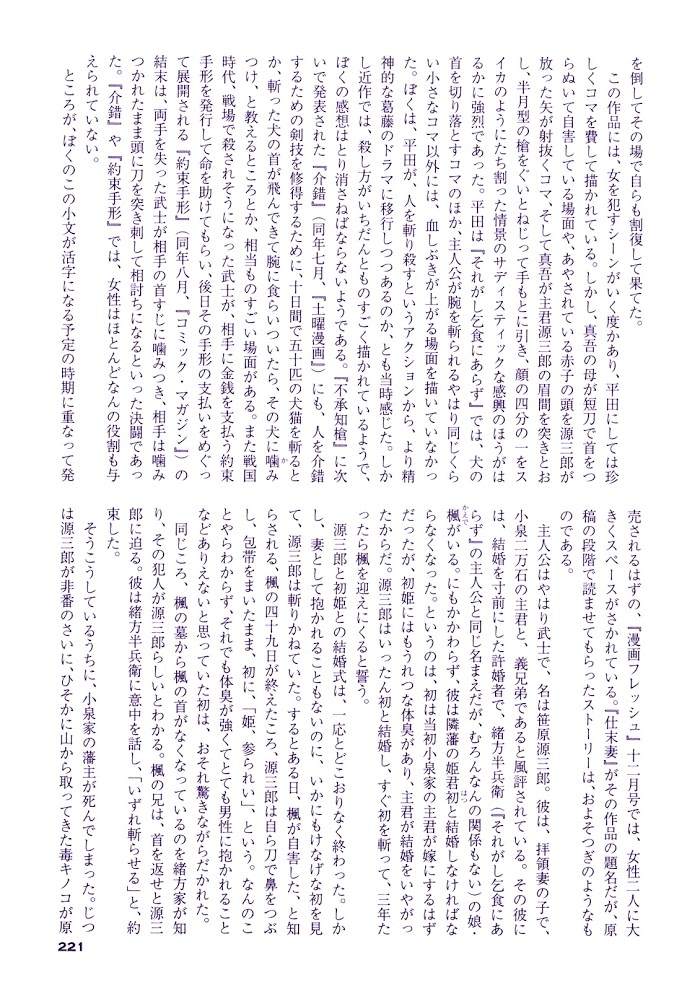 を倒してその場で自らも割腹して果てた。
　この作品には、女を犯すシーンがいく度かあり、平田にしては珍
しくコマを費して描かれている。しかし、真吾の母が短刀で首をつ
らぬいて自害している場面や、あやされている赤子の頭を源三郎が
放った矢が射抜くコマ、そして真吾が主君源三郎の眉間を突きとお
し、半月型の槍をぐいとねじって手もとに引き、顔の四分の一をス
イカのようにたち割った情景のサディスティックな感興のほうがは
るかに強烈であった。平田は『それがし乞食にあらず』では、犬の
首を切り落とすコマのほか、主人公が腕を斬られるやはり同じくら
い小さなコマ以外には、血しぶきが上がる場面を描いていなかっ
た。ぼくは、平田が、人を斬り殺すというアクションから、より精
神的な葛藤のドラマに移行しつつあるのか、とも当時感じた。しか
し近作では、殺し方がいちだんとものすごく描かれているようで、
ぼくの感想はとり消さねばならないようである。『不承知槍』に次
いで発表された『介錯』（同年七月、『土曜漫画』）にも、人を介錯
するための剣技を修得するために、十日間で五十匹の犬猫を斬ると
か、斬った犬の首が飛んできて腕に食らいついたら、その犬に噛み
つけ、と教えるところとか、相当ものすごい場面がある。また戦国
時代、戦場で殺されそうになった武士が、相手に金銭を支払う約束
手形を発行して命を助けてもらい、後日その手形の支払いをめぐっ
て展開される『約束手形』（同年八月、『コミック・マガジン』）の
結末は、両手を失った武士が相手の首すじに噛みつき、相手は噛み
つかれたまま頭に刀を突き刺して相討ちになるといった決闘であっ
た。『介錯』や『約束手形』では、女性はほとんどなんの役割も与
えられていない。
　ところが、ぼくのこの小文が活字になる予定の時期に重なって発
売されるはずの、『漫画フレッシュ』十二月号では、女性二人に大
きくスペースがさかれている。『仕末妻』がその作品の題名だが、原
稿の段階で読ませてもらったストーリーは、およそつぎのようなも
のである。
　主人公はやはり武士で、名は笹原源三郎。彼は、拝領妻の子で、
小泉二万石の主君と、義兄弟であると風評されている。その彼に
は、結婚を寸前にした許婚者で、緒方半兵衛（『それがし乞食にあ
らず』の主人公と同じ名まえだが、むろんなんの関係もない）の娘・
楓がいる。にもかかわらず、彼は隣藩の姫君初と結婚しなければな
らなくなった。というのは、初は当初小泉家の主君が嫁にするはず
だったが、初姫にはもうれつな体臭があり、主君が結婚をいやがっ
たからだ。源三郎はいったん初と結婚し、すぐ初を斬って、三年た
ったら楓を迎えにくると誓う。
　源三郎と初姫との結婚式は、一応とどこおりなく終わった。しか
し、妻として抱かれることもないのに、いかにもけなげな初を見
て、源三郎は斬りかねていた。するとある日、楓が自害した、と知
らされる、楓の四十九日が終えたころ、源三郎は自ら刀で鼻をつぶ
し、包帯をまいたまま、初に、「姫、参られい」、という。なんのこ
とやらわからず、それでも体臭が強くてとても男性に抱かれること
などありえないと思っていた初は、おそれ驚きながらだかれた。
　同じころ、楓の墓から楓の首がなくなっているのを緒方家が知
り、その犯人が源三郎らしいとわかる。楓の兄は、首を返せと源三
郎に迫る。彼は緒方半兵衛に意中を話し、「いずれ斬らせる」と、約
束した。
　そうこうしているうちに、小泉家の藩主が死んでしまった。じつ
は源三郎が非番のさいに、ひそかに山から取ってきた毒キノコが原
221